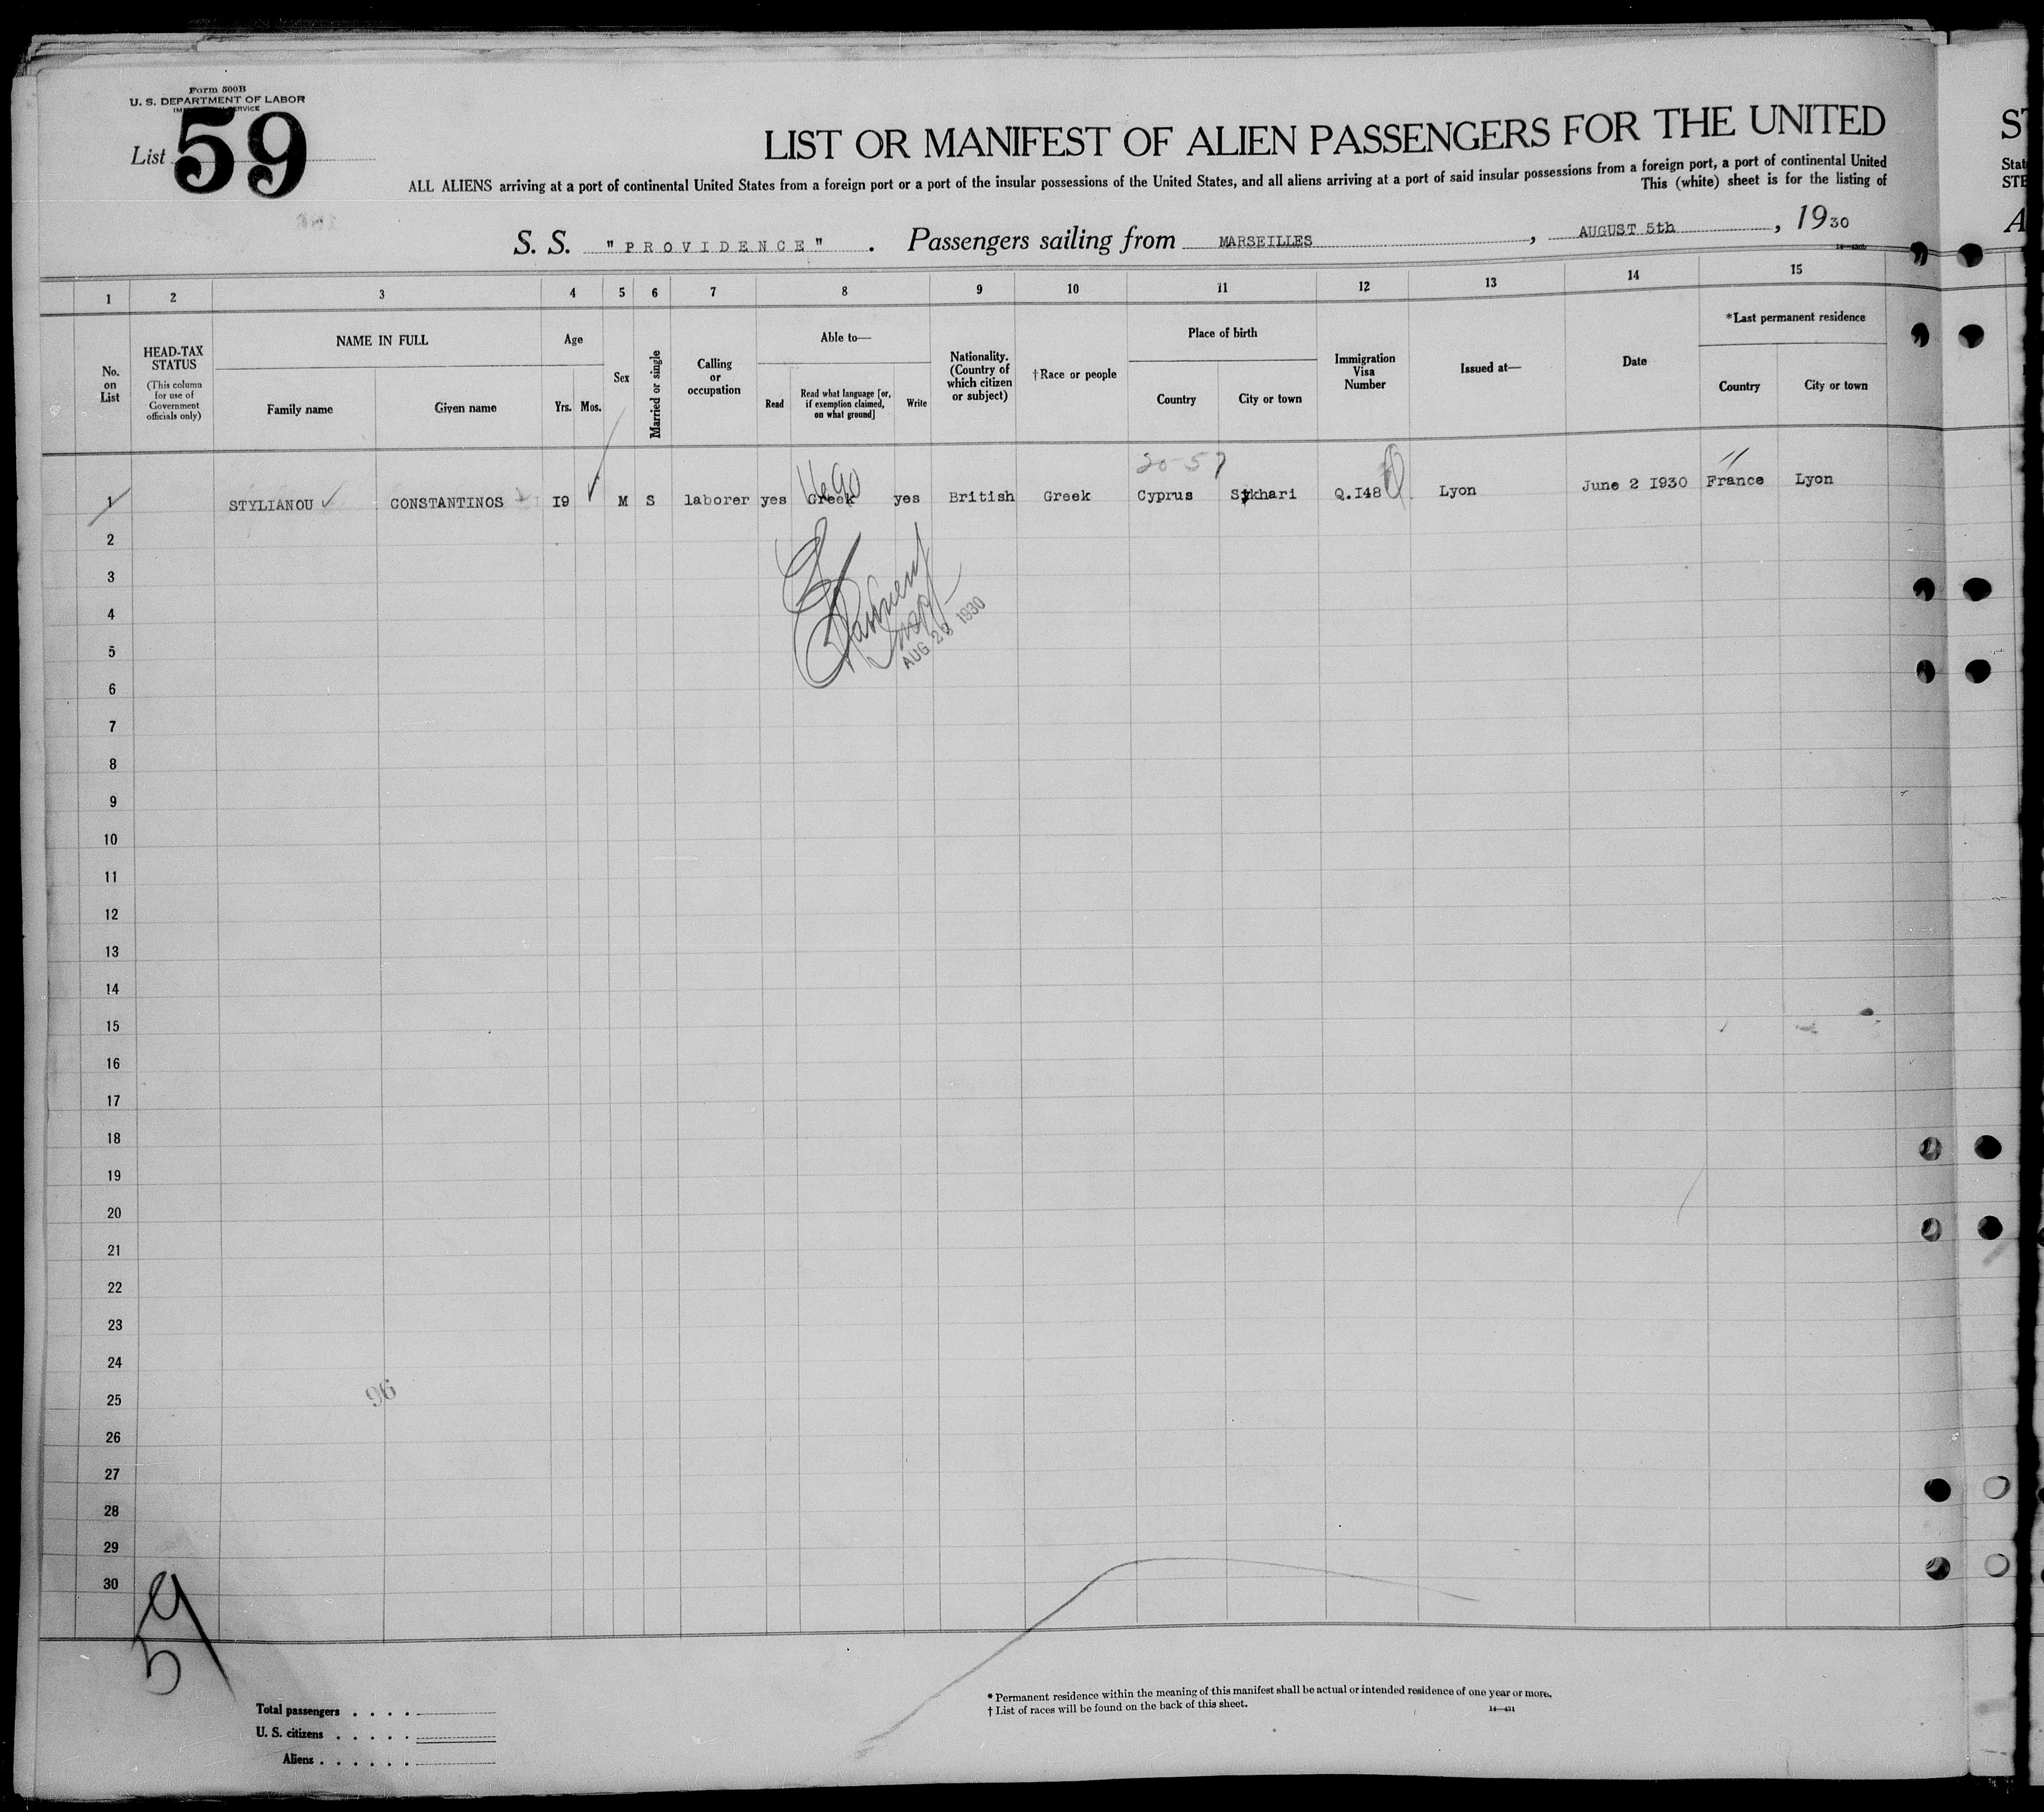 Form 500B
U. S. DEPARTMENT OF LABOR
List 59
LIST OR MANIFEST OF ALIEN PASSENGERS FOR THE UNITED
ALL ALIENS arriving at a port of continental United States from a foreign port or a port of the insular possessions of the United States, and all aliens arriving at a port of said insular possessions from a foreign port, a port of continental United
This (white) sheet is for the listing of
S. S. "PROVIDENCE" . Passengers sailing from MARSEILLES , AUGUST 5th , 1930
1 2 3 4 5 6 7 8 9 10 11 12 13 14 15
No. on List
HEAD-TAX STATUS
(This column for use of Government officials only)
NAME IN FULL
Family name Given name
Age
Yrs. Mos.
Sex
Married or single
Calling or occupation
Able to—
Read
Read what language [or, if exemption claimed, on what ground]
Write
Nationality. (Country of which citizen or subject)
†Race or people
Place of birth
Country City or town
Immigration Visa Number
Issued at—
Date
*Last permanent residence
Country City or town
20-57
1 STYLIANOU CONSTANTINOS I9 M S laborer yes Greek yes British Greek Cyprus Q.I48 Lyon June 2 I930 France Lyon
2
3
4
AUG 1930
5
6
7
8
9
10
11
12
13
14
15
16
17
18
19
20
21
22
23
24
25
96
26
27
28
29
30
59
Total passengers . . . .
U. S. citizens . . . . .
Aliens . . . . . .
* Permanent residence within the meaning of this manifest shall be actual or intended residence of one year or more.
† List of races will be found on the back of this sheet.
14—431